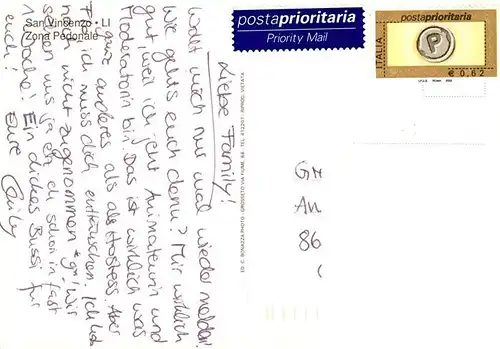 San Vincenzo • LI
Zona Pedonale
Liebe Family!
Wollt mich nur mal wieder melden!
Wie gehts euch denn? Mir wirklich
gut, weil ich jetzt Animateurin und
Moderatorin bin. Das ist wirklich was
ganz anderes als als Hostess. Aber
ich muss dich enttäuschen. Ich hab
nicht zugenommen *gg*! Wir
sehen uns ja eh schon in fast
Woche! Ein dickes Bussi für
euch! Eure
ED. C. BONAZZA PHOTO - GROSSETO VIA FIUME, 68 - TEL. 412201 - RIPROD. VIETATA
postaprioritaria
Priority Mail
postaprioritaria
ITALIA
P
€ 0,62
An
86